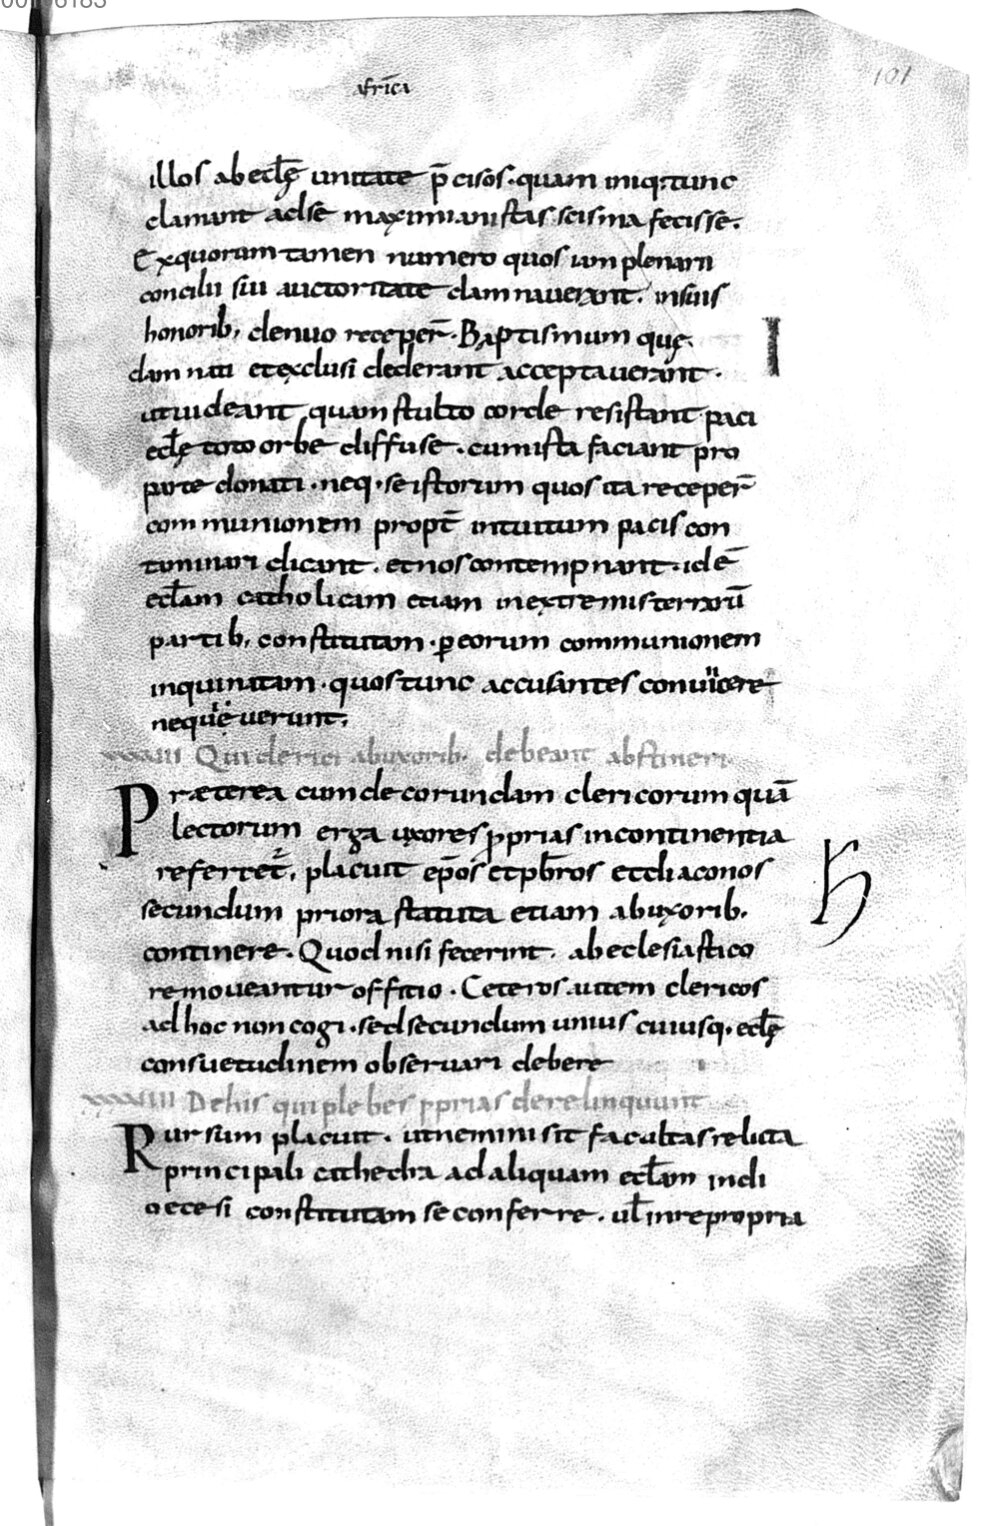 101
africa
illos ab ecl̄ę unitate p̄cisos· quam iniq; tunc
clamant ad se maximianistas scisma fecisse.
Ex quorum tamen numero quos iam plenarii
concilii sui auctoritate damnauerant. in suis
honorib; denuo receper̄. Baptismum quę
damnati et exclusi dederant acceptauerant.
ut uideant quam stulto corde resistant paci
ecl̄ę toto orbe diffuse. cum ista faciant pro
parte donati. neq· se istorum quos ita receper̄
communionem propt̄ intuitum pacis con
taminari dicant. et nos contempnant. idē
ecl̄am catholicam etiam in extremis terrarū
partib; constitutam. p eorum communionem
inquinatam. quos tunc accusantes conuicere
nequiuerunt;
xxxiii Qui clerici ab uxorib. debeant abstineri
Præterea cum de corundam clericorum quā
lectorum erga uxores pprias incontinentia
referret᷑, placuit ep̄os et pbr̄os et diaconos
secundum priora statuta etiam ab uxorib.
continere. Quod nisi fecerint. ab eclesiastico
remoueantur offitio. Ceteros autem clericos
ad hoc non cogi. sed secundum unius cuiusq. ecl̄ę
consuetudinem obseruari debere
xxxiiii De his qui plebes pprias derelinquunt
Rursum placuit. ut nemini sit facultas relicta
principali cathedra ad aliquam ecl̄am in di
ocesi constitutam se conferre. ul̄ in re propria